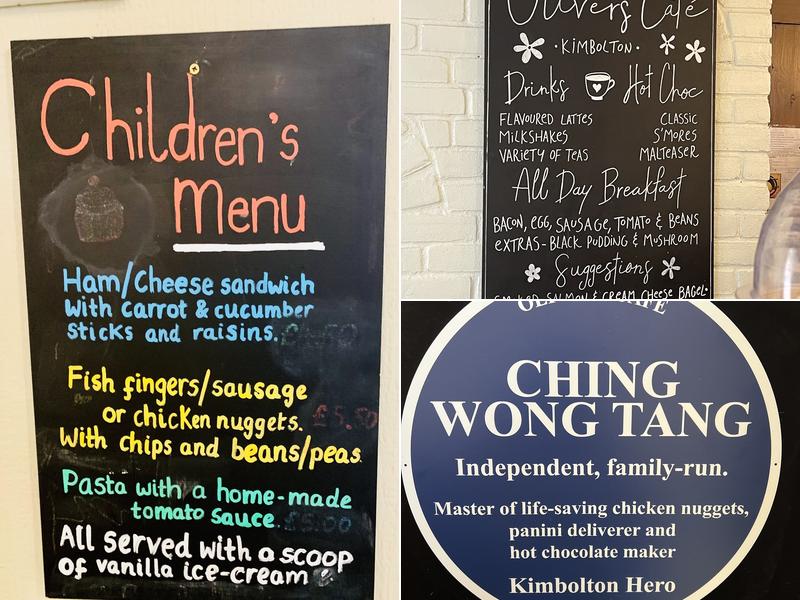 Children's
Menu
Ham/Cheese sandwich
With carrot & cucumber
sticks and raisins.
Fish fingers/sausage
or chicken nuggets. £5.50
With chips and beans/peas
Pasta with a home-made
tomato sauce £5.00
All served with a scoop
of vanilla ice-cream
Olivers Cafe
·KIMBOLTON·
Drinks Hot Choc
FLAVOURED LATTES CLASSIC
MILKSHAKES S'MORES
VARIETY OF TEAS MALTEASER
All Day Breakfast
BACON, EGG, SAUSAGE, TOMATO & BEANS
EXTRAS-BLACK PUDDING & MUSHROOM
Suggestions
SMOKED SALMON & CREAM CHEESE BAGEL·
CHING
WONG TANG
Independent, family-run.
Master of life-saving chicken nuggets,
panini deliverer and
hot chocolate maker
Kimbolton Hero